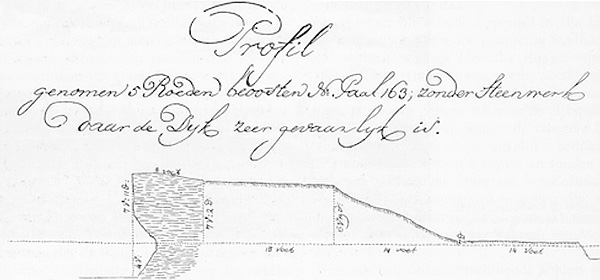 Profil
genomen 5 Roeden beoosten N. Paal 163; zonder Steenwerk
daar de Dyk zeer gevaarlyk is.
8 voet
13 voet
14 voet
14 voet